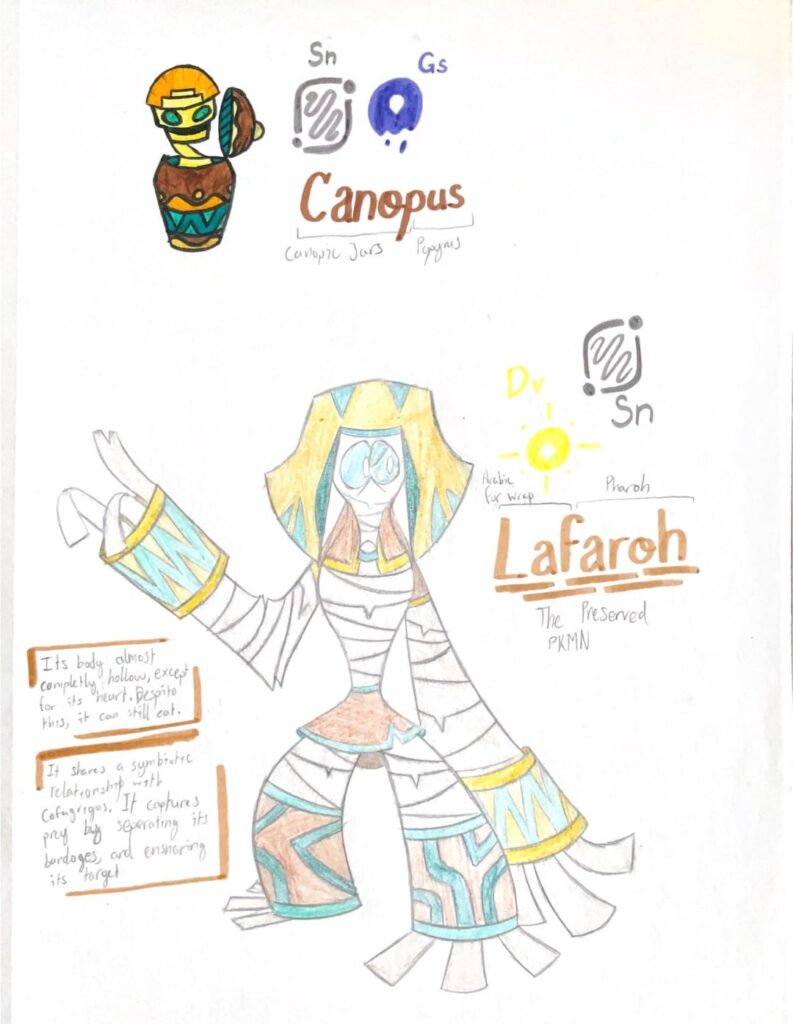 Sn
Gs
Canopus
Canopic Jars
Papyrus
Dv
Sn
Arabic
for Wrap
Pharoh
Lafaroh
The Preserved
PKMN
Its body almost
completly hollow, except
for its heart. Despite
this, it can still eat.
It shares a symbiotic
relationship with
Cofagrigus. It captures
prey by seperating its
bandages, and ensnaring
its target